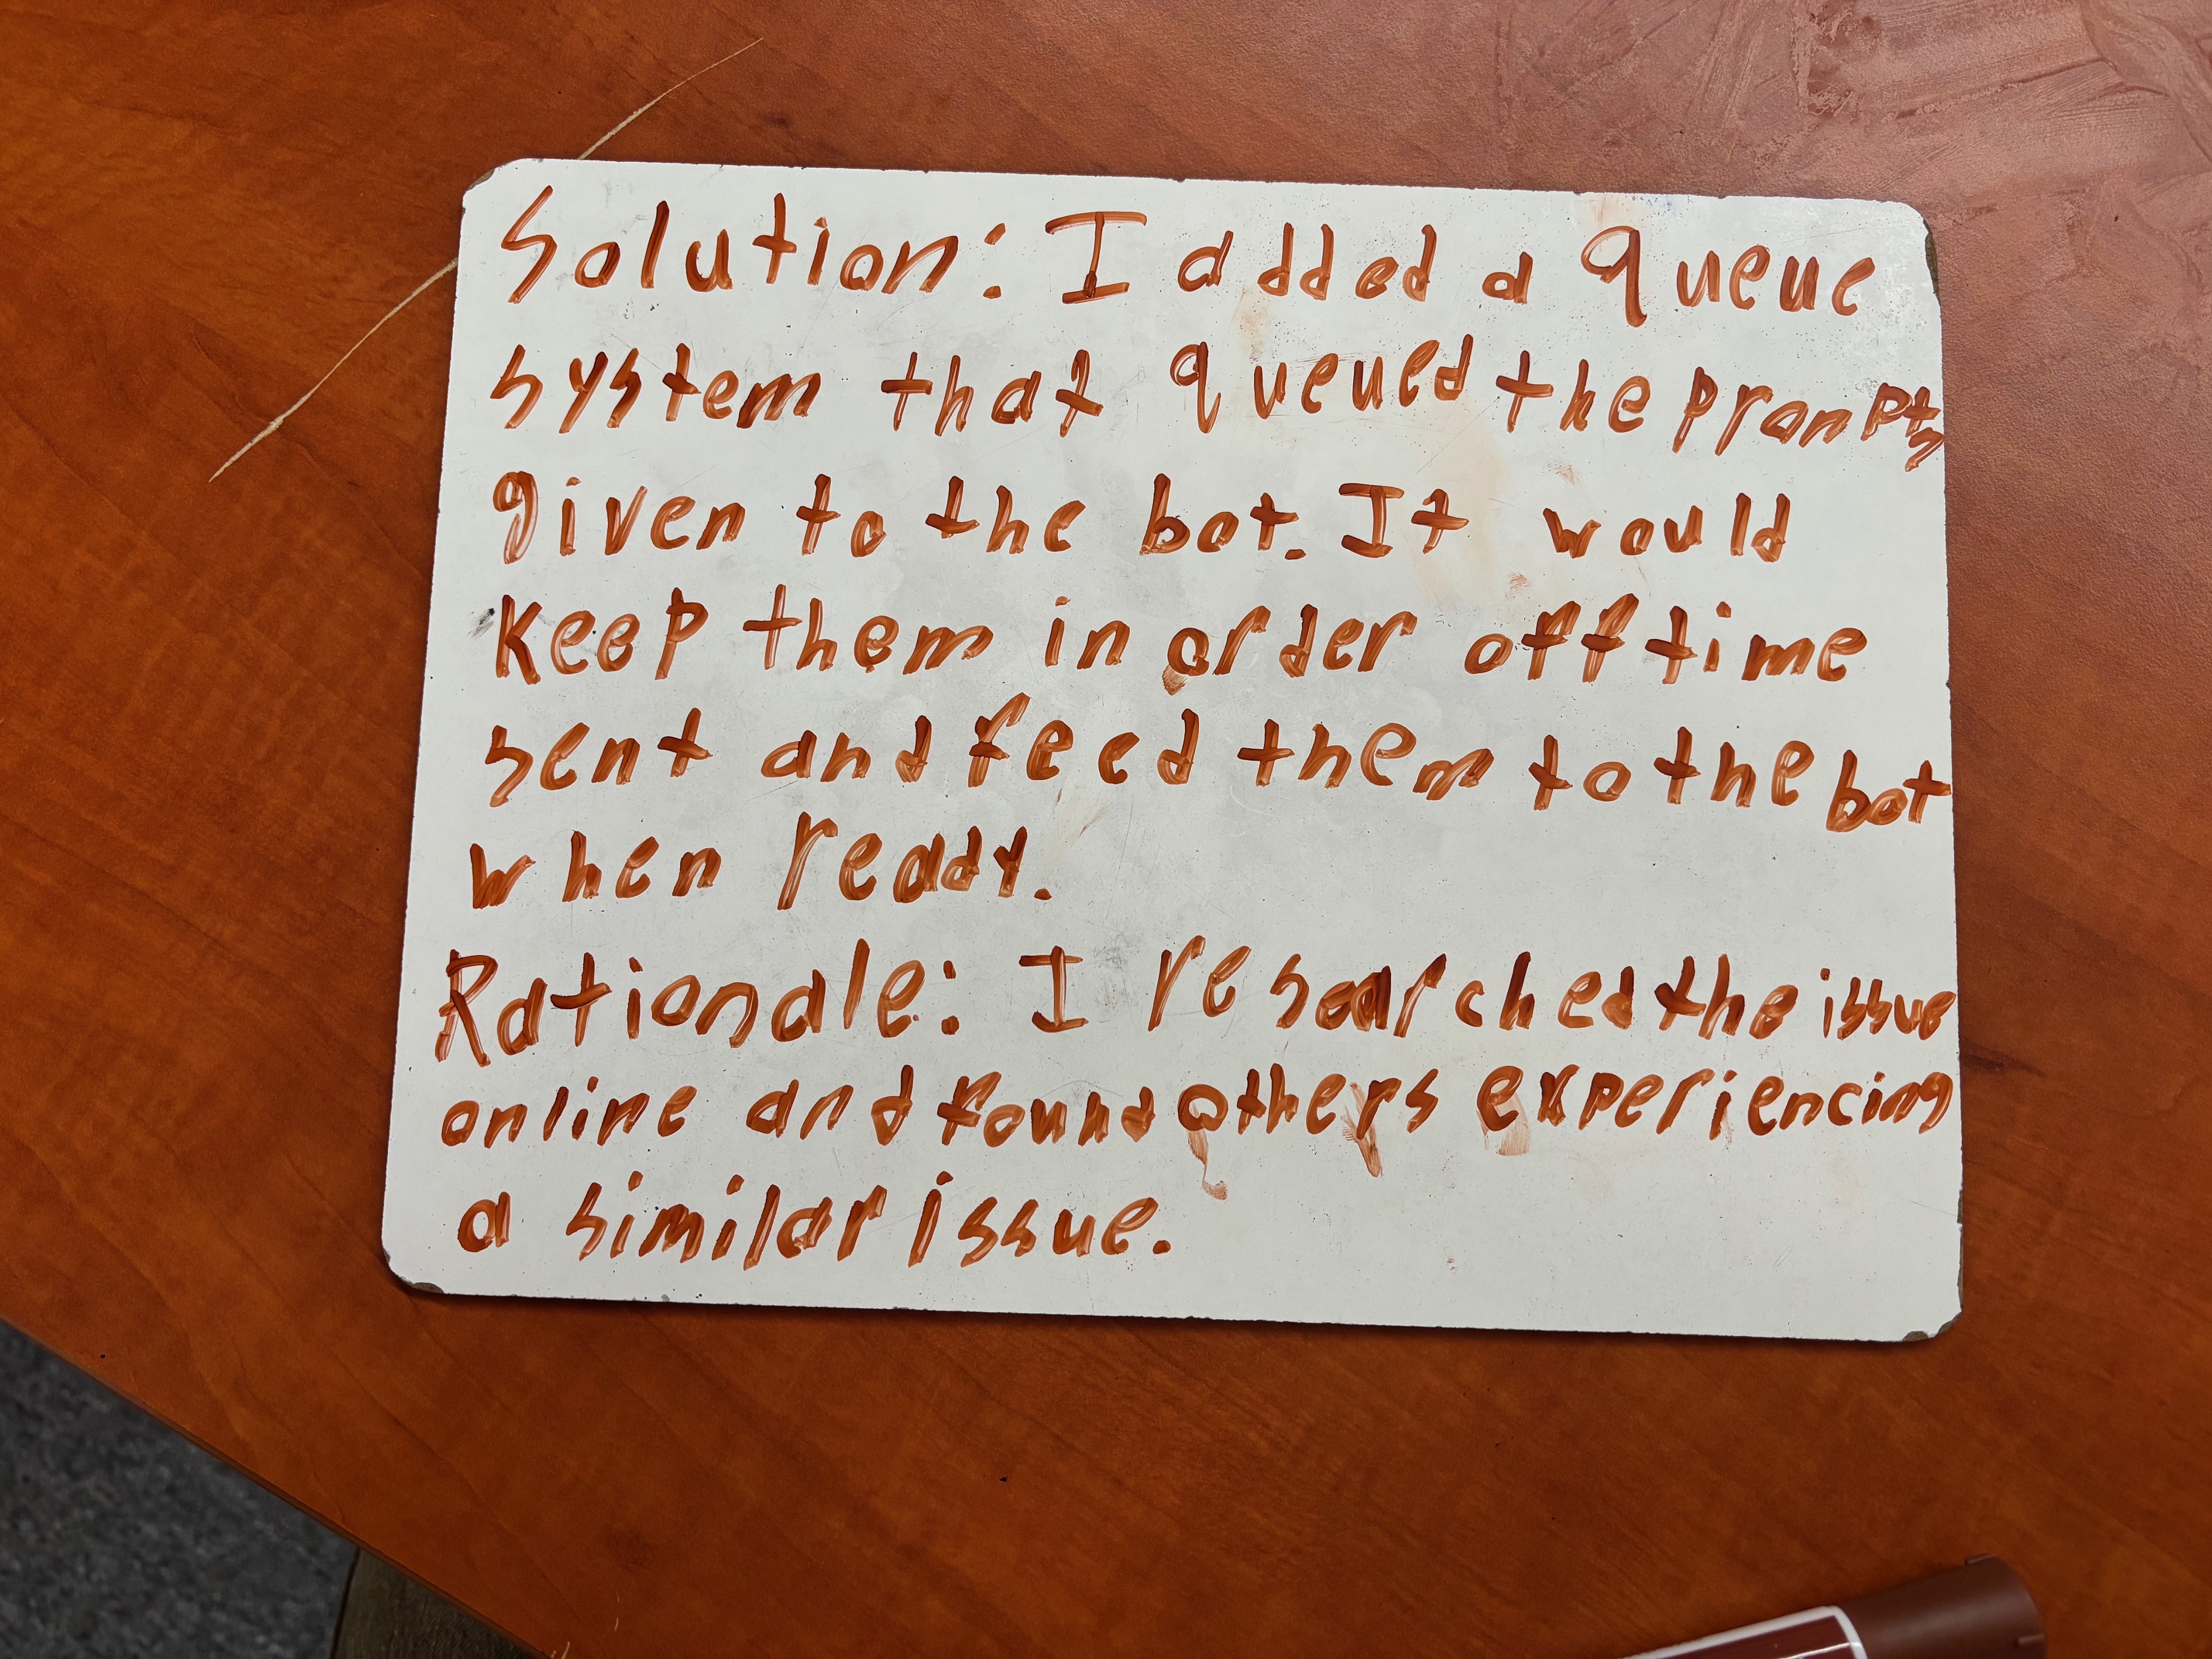 Solution: I added a queue
system that queued the prompts
given to the bot. It would
keep them in order off time
sent and feed them to the bot
when ready.
Rationale: I researched the issue
online and found others experiencing
a similar issue.